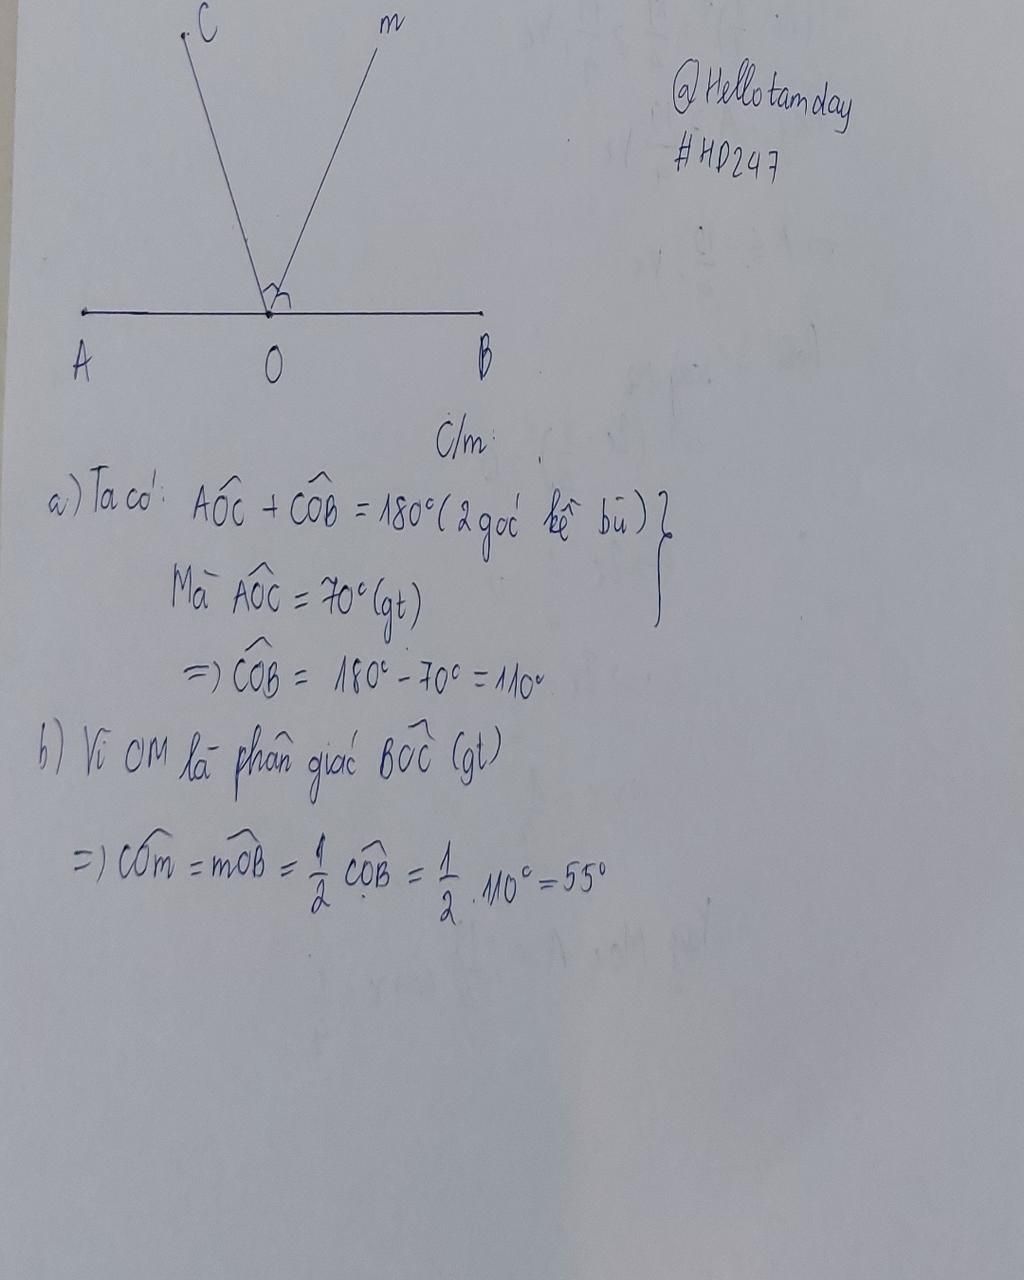 C m
@Hellotamday
#HD247
A O B
C/m:
a) Ta có: AÔC + CÔB = 180° (2 góc kề bù) }
Mà AÔC = 70° (gt)
=> CÔB = 180° - 70° = 110°
b) Vì OM là phân giác BÔC (gt)
=> CÔm = mÔB = 1/2 CÔB = 1/2 . 110° = 55°